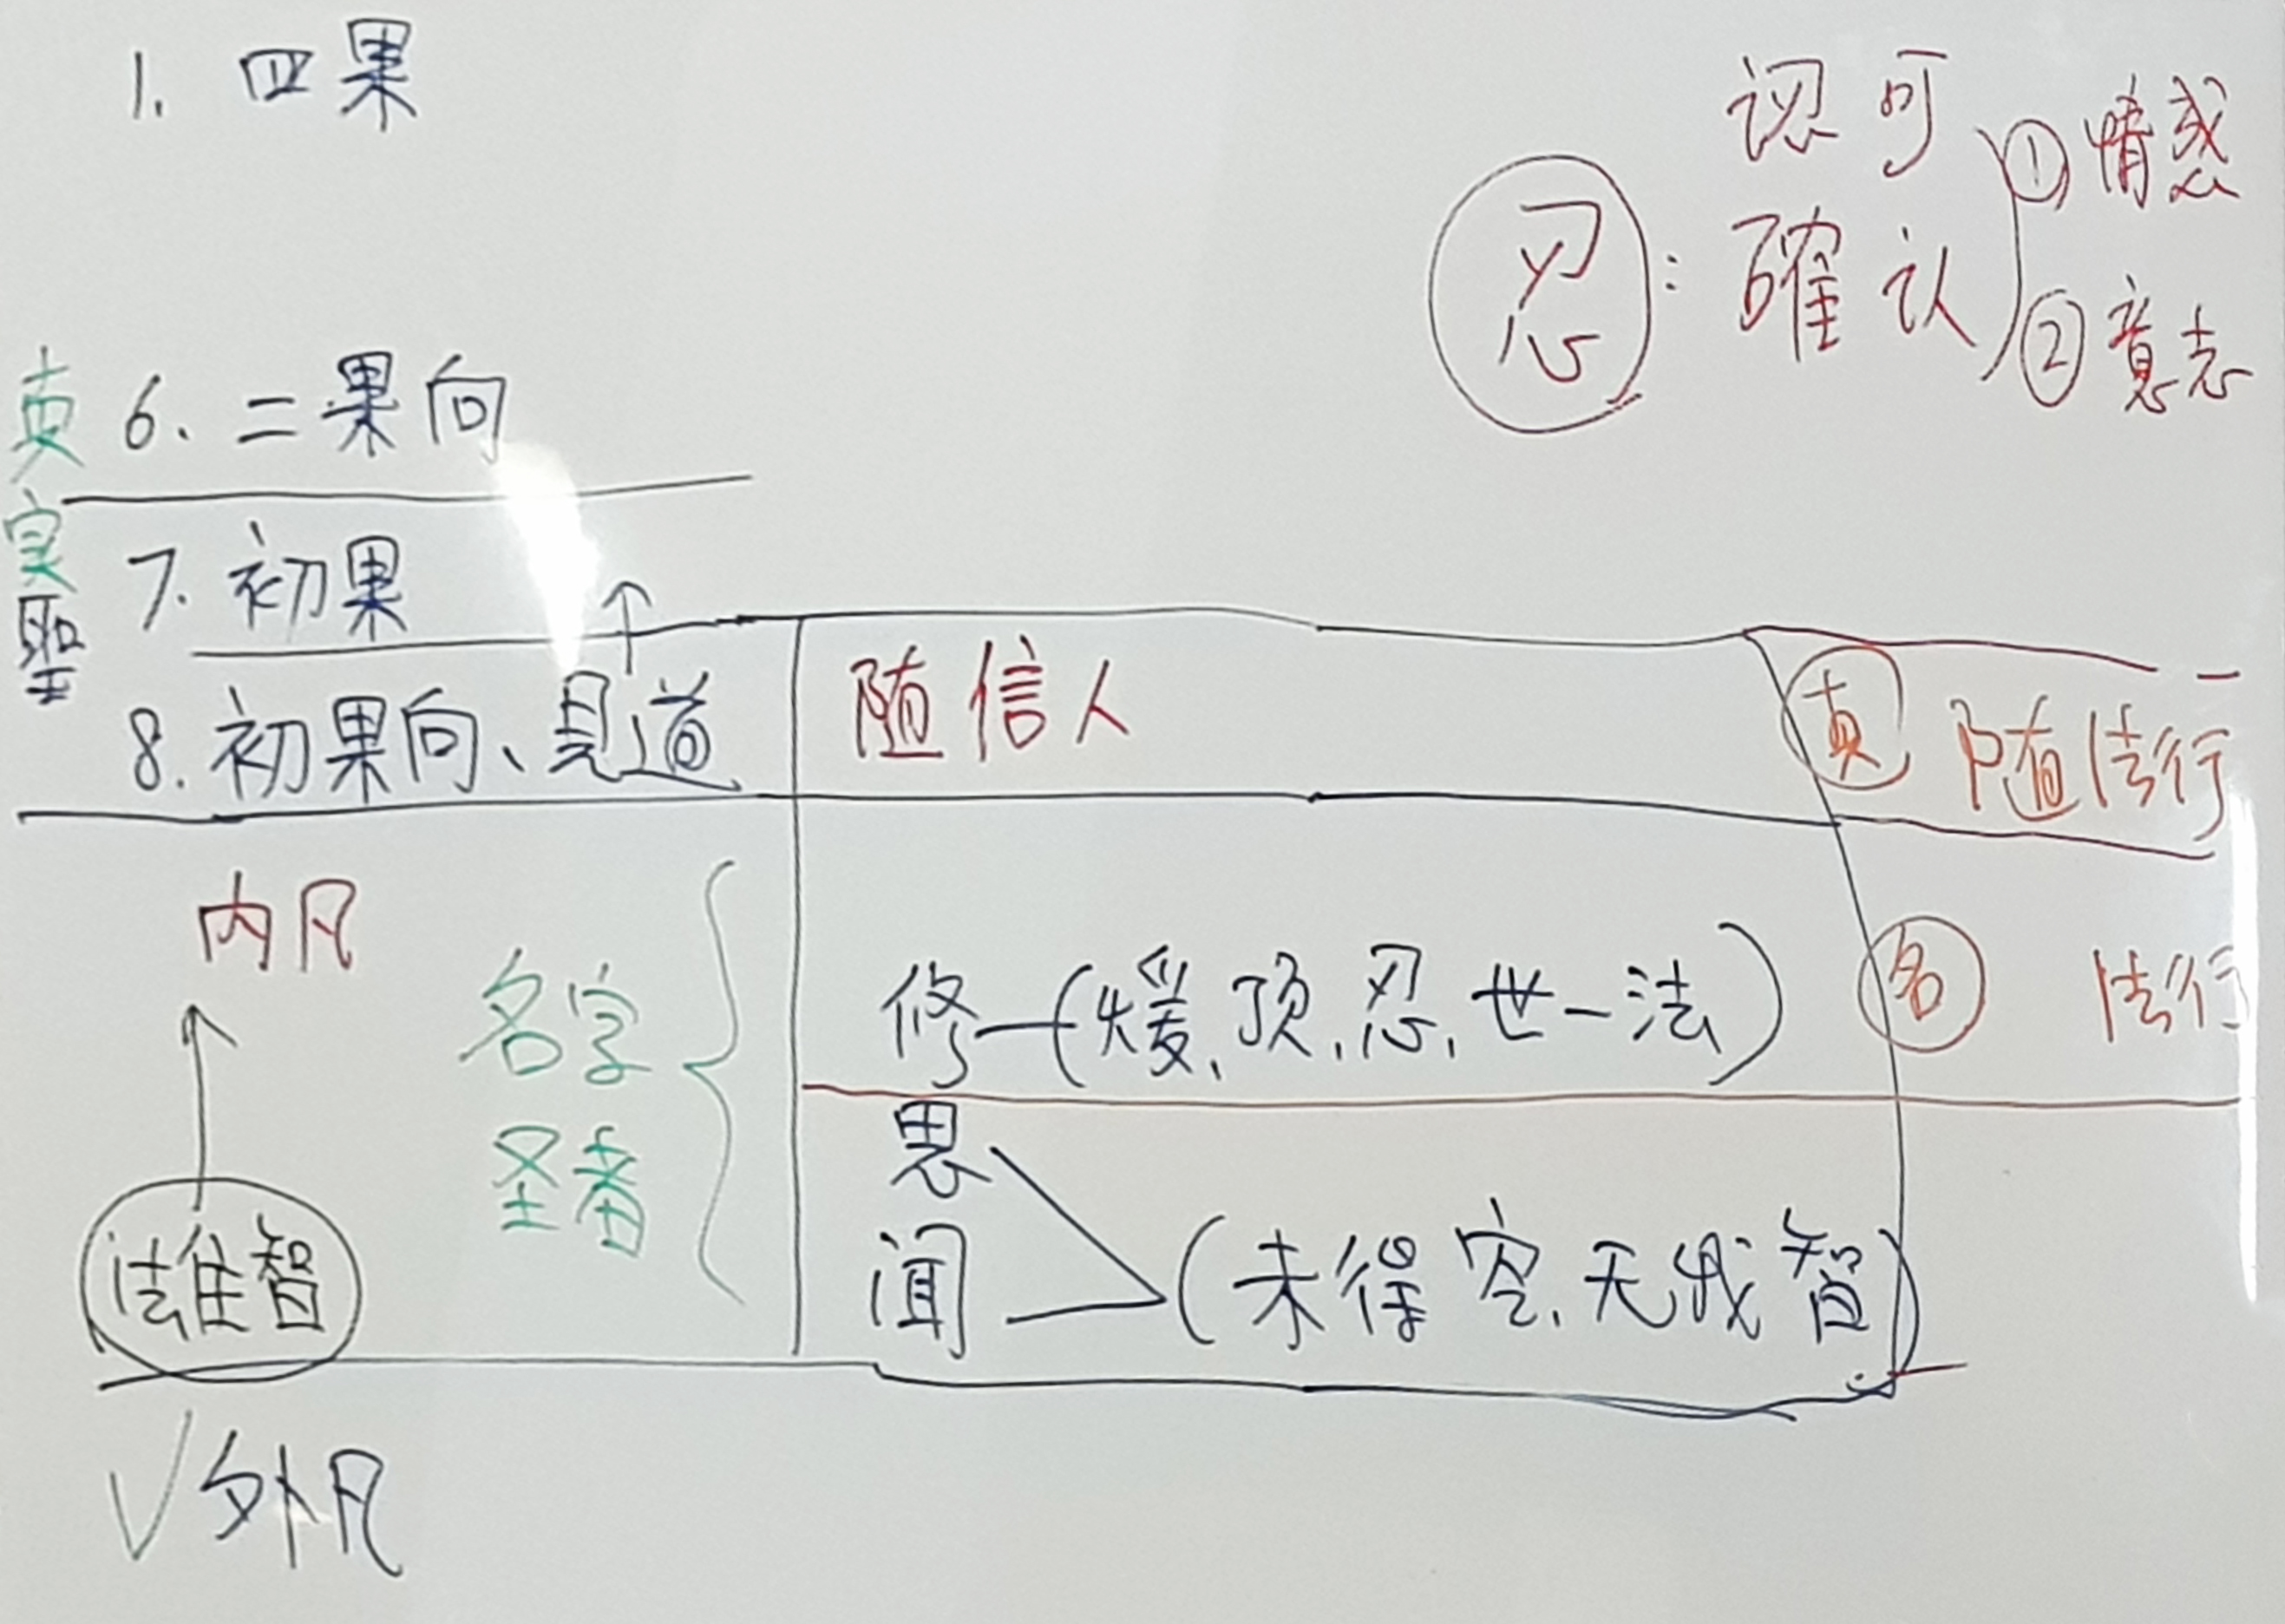 1. 四果
認可
確认
忍:
① 情感
② 意志
6. 二果向
7. 初果
真实聖
8. 初果向、見道
随信人
真
随法行
内凡
名字
修—(煖、顶、忍、世一法)
名
法行
思
闻
(未得空、无我智)
法住智
√外凡